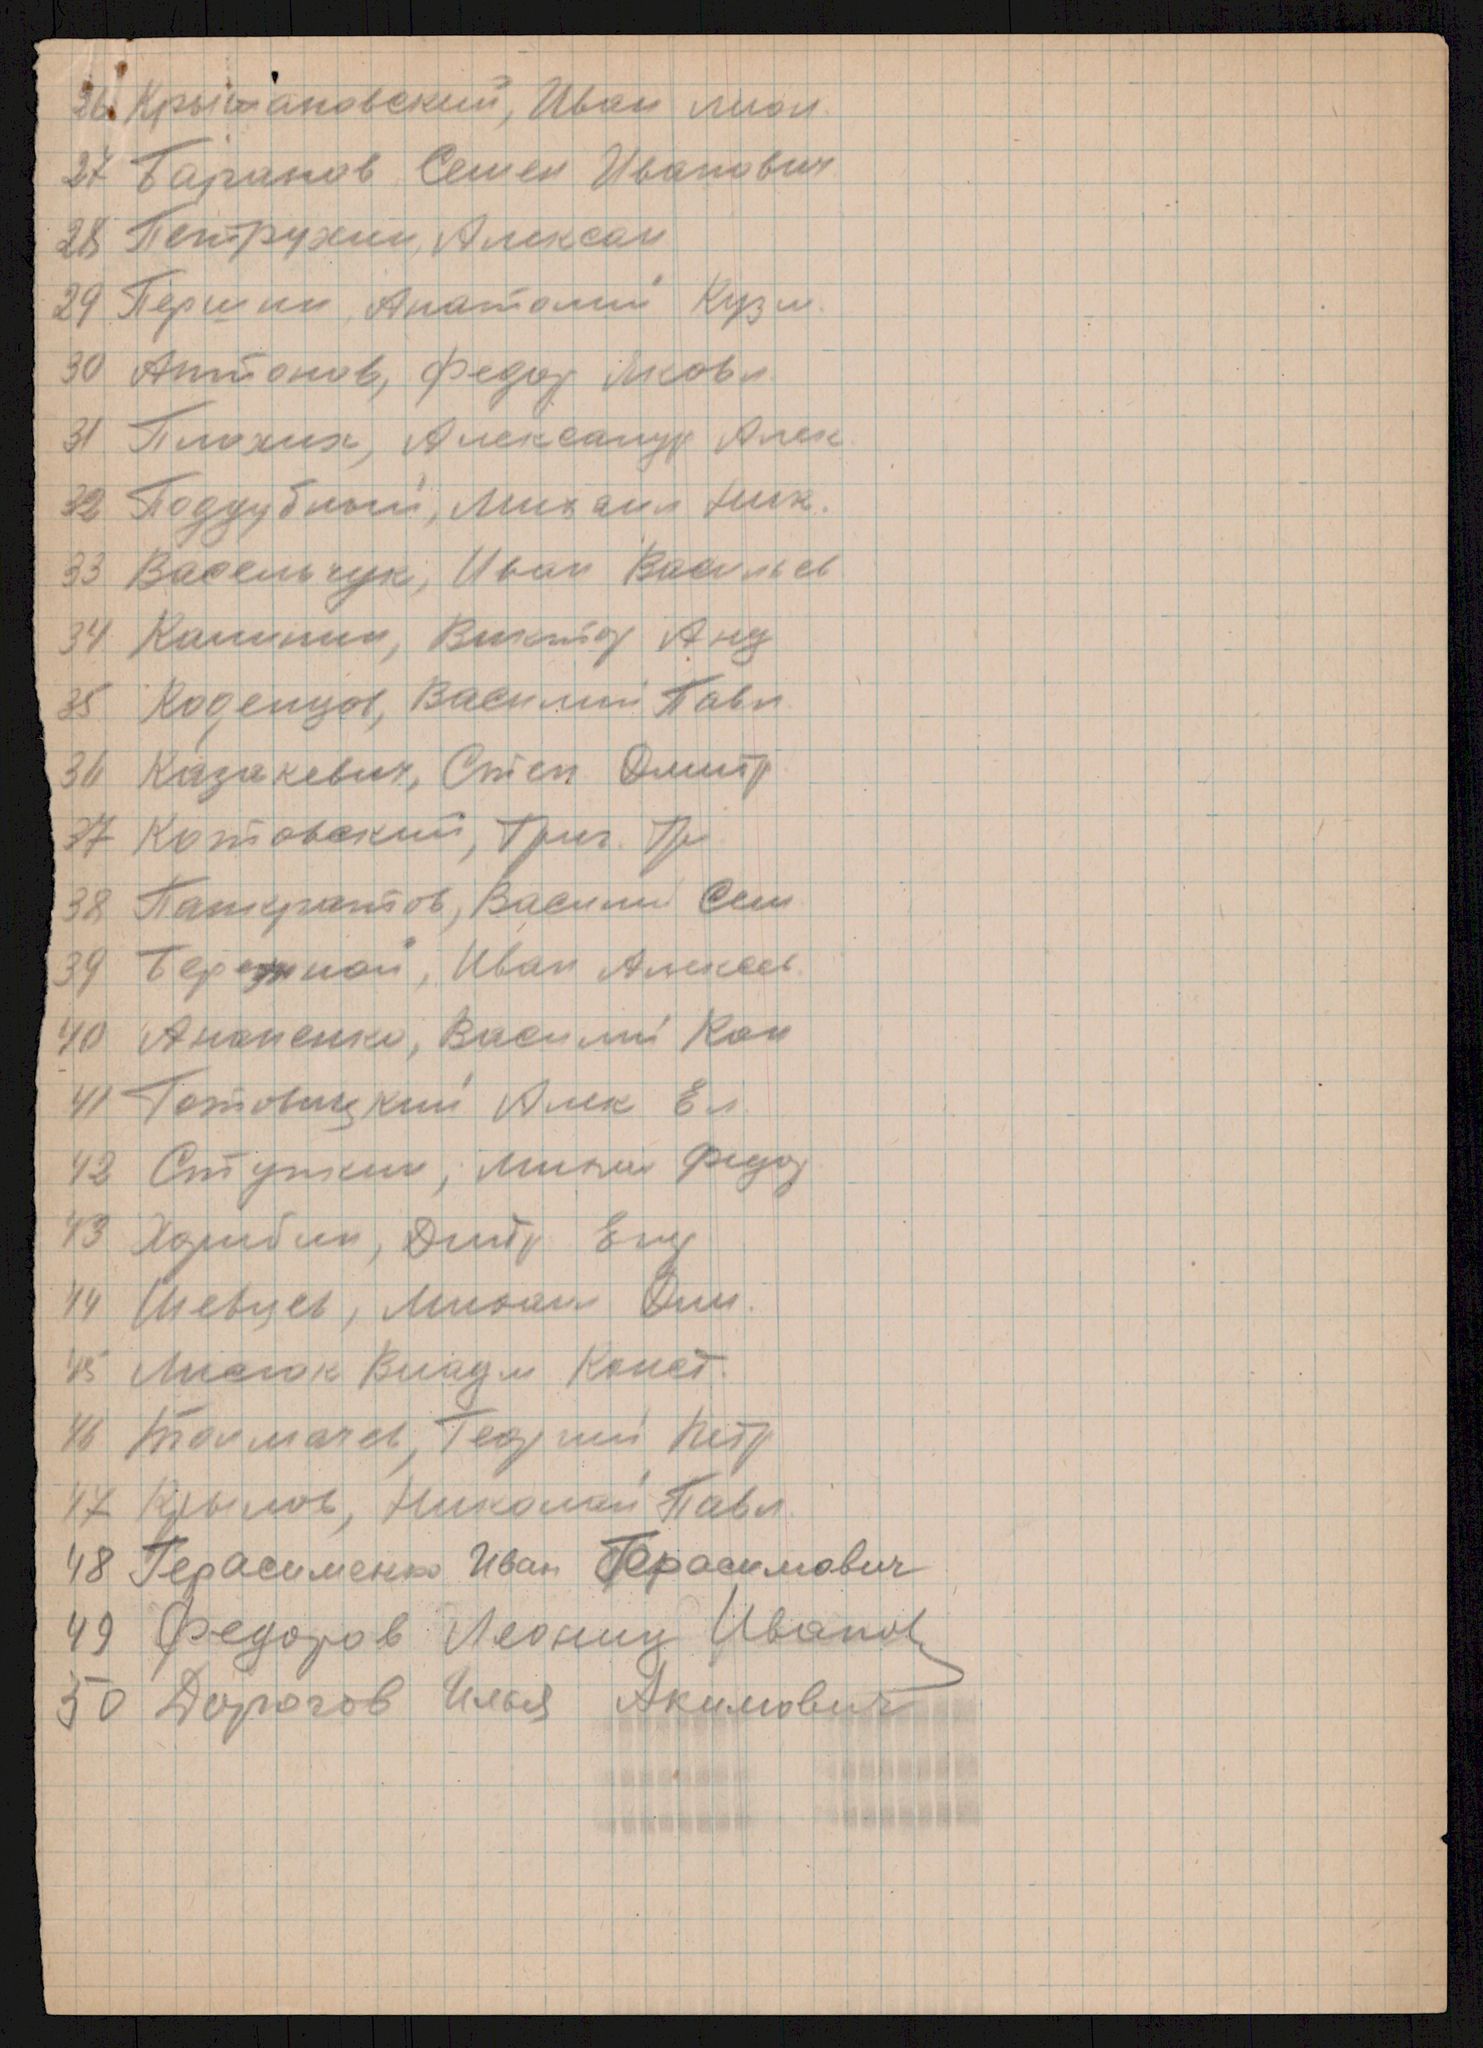 26 Крыжановский, Иван
27 Баранов Семен Иванович
28 Петрухин, Алексан
29 Першин, Анатолий Кузм.
30 Антонов, Федор Яковл.
31 Плохих, Александр Алек.
32 Поддубный, Михаил Ник.
33 Васельчук, Иван Васильев
34 Калинин, Виктор Анд
35 Коденцов, Василий Павл.
36 Казакевич, Степ Дмитр
37 Котовский, Григ. Гр
38 Панкратов, Василий Сем
39 Бережной, Иван Алексеев.
40 Ананенко, Василий Кон
41 Готовицкий Алек Ел.
42 Ступкин, Михаил Федор
43 Дмитр
44 Шевцев, Михаил Дми.
45 Лисюк Владим Конст.
46 Толмачев, Георгий Петр
47 Крылов, Николай Павл.
48 Герасименко Иван Герасимович
49 Федоров Леонид Иванов
50 Дорогов Илья Акимович